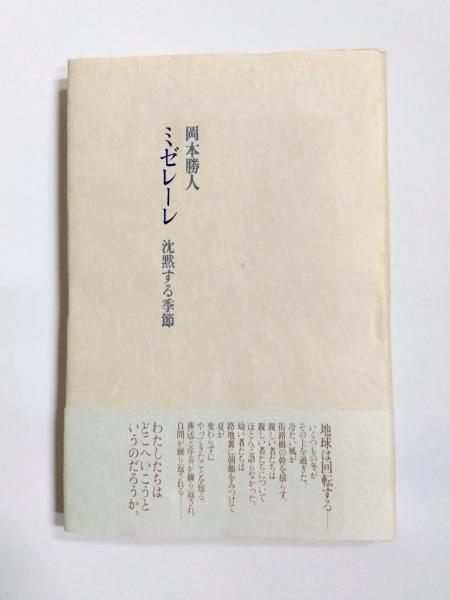 岡本勝人
ミゼレーレ
沈黙する季節
地球は回転する――
いくつもの冬が
その上を過ぎた。
冷たい風が
街路樹の幹を揺らす。
親しい者たちは
親しい者たちについて
ほとんど語らなかった。
幼い者たちは
路地裏に朝顔をみつけて
夏が
変わらずに
やってきたことを知る。
葬送と序奏が繰り返され、
自問が繰り返される――
わたしたちは
どこへいこうと
いうのだろうか。